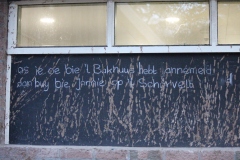 as ie oe bie 't Bakhuus hebt anemeld
dan buy bie Jannie op 't Scharvelt